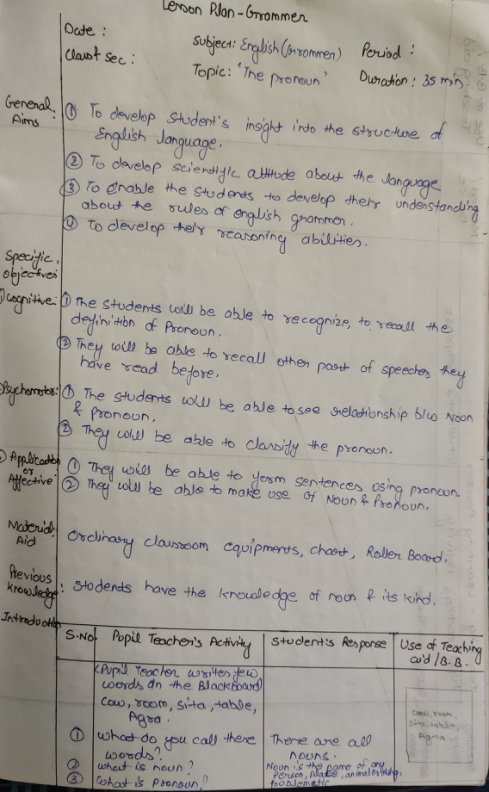 Lesson Plan - Grammer
Date :
Subject: English (Grammer) Period :
Class & Sec :
Topic: "The pronoun" Duration : 35 min
General Aims : ① To develop student's insight into the structure of
English language.
② To develop scientific attitude about the language
③ To enable the students to develop their understanding
about the rules of english grammer.
④ To develop their reasoning abilities.
Specific objectives
Cognitive: ① The students will be able to recognize, to recall the
definition of Pronoun.
② They will be able to recall other part of speeches they
have read before.
Psychomotor: ① The students will be able to see relationship b/w Noun
& Pronoun.
② They will be able to classify the pronoun.
Application or Affective: ① They will be able to form sentences using pronoun.
② They will be able to make use of Noun & Pronoun.
Material Aid : Ordinary classroom equipments, chart, Roller Board.
Previous Knowledge : Students have the knowledge of noun & its kind.
Introduction
S.No. Pupil Teacher's Activity Student's Response Use of Teaching
aid / B.B.
(Pupil Teacher writes few
words on the BlackBoard)
Cow, room, sita, table,
Agra.
Cow, room,
sita, table,
Agra
① What do you call these There are all
words? nouns.
② What is noun? Noun is the name of any
person, place, animal or thing.
③ What is pronoun? Problematic